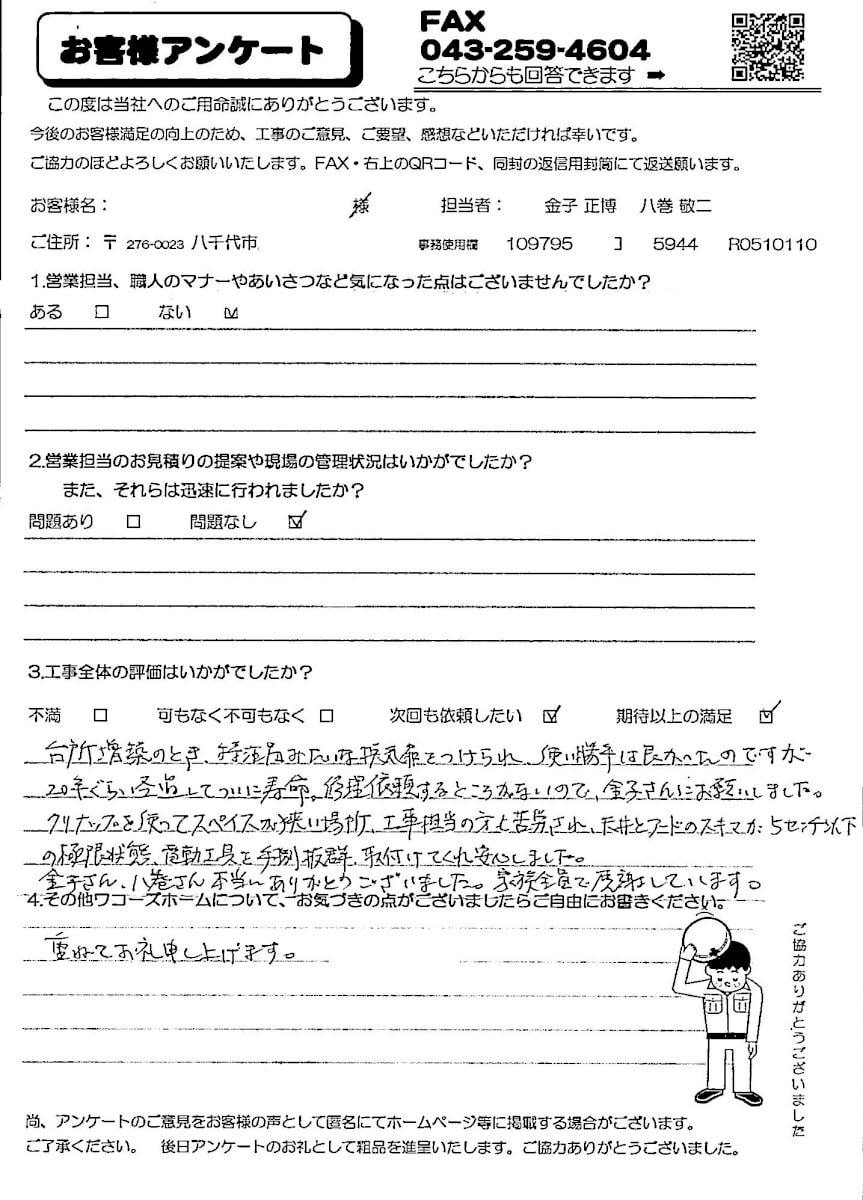 お客様アンケート
FAX
043-259-4604
こちらからも回答できます ➡
この度は当社へのご用命誠にありがとうございます。
今後のお客様満足の向上のため、工事のご意見、ご要望、感想などいただければ幸いです。
ご協力のほどよろしくお願いいたします。FAX・右上のQRコード、同封の返信用封筒にて返送願います。
お客様名： 様 担当者： 金子 正博 八巻 敬二
ご住所：〒 276-0023 八千代市 事務使用欄 109795 コ 5944 R0510110
1.営業担当、職人のマナーやあいさつなど気になった点はございませんでしたか？
ある □ ない ☑
2.営業担当のお見積りの提案や現場の管理状況はいかがでしたか？
また、それらは迅速に行われましたか？
問題あり □ 問題なし ☑
3.工事全体の評価はいかがでしたか？
不満 □ 可もなく不可もなく □ 次回も依頼したい ☑ 期待以上の満足 ☑
台所増築のとき、特注品みたいな換気扇をつけられ、使い勝手は良かったのですが
20年ぐらい してついに寿命。修理依頼するところがないので、金子さんにお願いしました。
クリナップを使ってスペイスが狭い場所、工事担当の方も苦労され、天井とフードのスキマが5センチ以下
の極限状態、電動工具を 抜群、取付けてくれ安心しました。
金子さん、八巻さん本当にありがとうございました。家族全員で感謝しています。
4.その他ワコーズホームについて、お気づきの点がございましたらご自由にお書きください。
重ねてお礼申し上げます。
ご協力ありがとうございました
尚、アンケートのご意見をお客様の声として匿名にてホームページ等に掲載する場合がございます。
ご了承ください。 後日アンケートのお礼として粗品を進呈いたします。ご協力ありがとうございました。